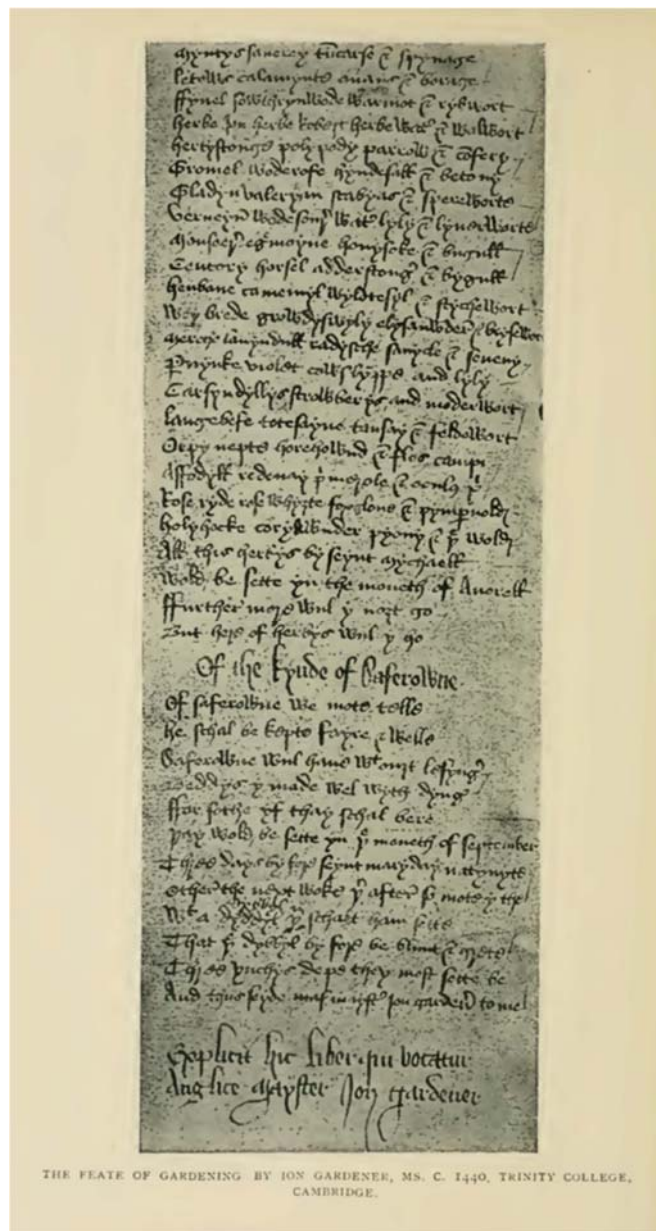 Myntys saverey tuncarse & spynage
letows calamynte auans & borage
ffynel sowthrynwode warmot & rybwort
herbe Jon herbe Robert herbe Watr & walwort
hertystonge polypody parrow & comfery
Gromel woderofe hyndesall & betony
Gladyn valeryan scabyas & sperewort
verveyn wodesour watr lyly & lyverworte
Mouseer egrmoyne honysoke & bugull
Centory horsel adderstong & bygull
henbane camemyl wyldtesyl & stychewort
weybrede growdyswyly elysauwder & brysewort
Mercury lavyndull radysche sanycle & seueny
Peruynke violet cowslyppe and lyly
Carsyndyllys strowberys and moderwort
langebefe totesayne tansay & feldewort
Orpy nepte horehownd & flos campi
Affodyll redenay primerole & oculus
Rose ryde rose whyte foxgloue & pympernold
holyhocke coryawnder pyony & wold
All this herbys by seynt Mychaell
wold be sette yn the moneth of Auerell
ffurther more wul y nozt go
But here of herbys wul y ho
Of the kynde of Saferowne
Of saferowne we mote telle
he schal be kepte fayre & welle
Saferowne wul haue wt out lesyng
Beddys y made wel wyth dyng
ffor sothe yf thay schal bere
þay wold be sette yn þe moneth of september
Thre days by fore seynt mary day natyuyte
other the next woke þr after so mote y the
Wt a dybbyl þu schalt ham sette
That þe dybbyl by fore be blunt & grete
Thre ynchys depe they most sette be
And thus seyde mastr Jon gardener to me
Explicit hic liber qui vocatur
Anglice Mayster Jon Gardener
THE FEATE OF GARDENING BY ION GARDENER, MS. C. 1440, TRINITY COLLEGE,
CAMBRIDGE.